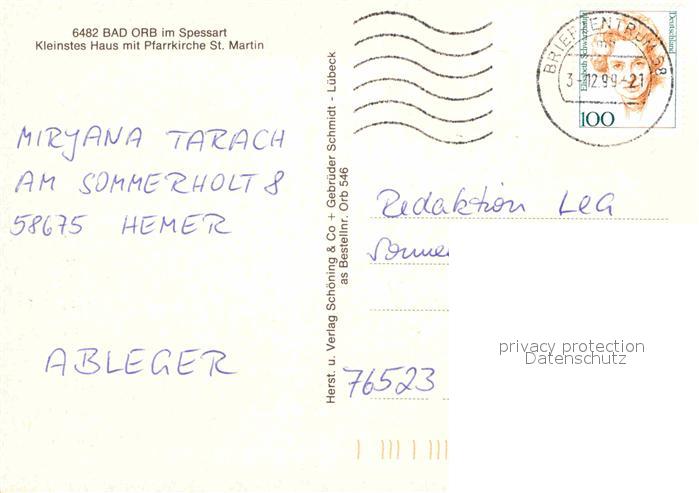 6482 BAD ORB im Spessart
Kleinstes Haus mit Pfarrkirche St. Martin
MIRJANA TARACH
AM SOMMERHOLT 8
58675 HEMER
ABLEGER
Herst. u. Verlag Schöning & Co + Gebrüder Schmidt - Lübeck
as Bestellnr. Orb 546
BRIEFZENTRUM 58
3-12.99-21
Elisabeth Schwarzhaupt
Deutschland
100
Redaktion LEA
76523
privacy protection
Datenschutz